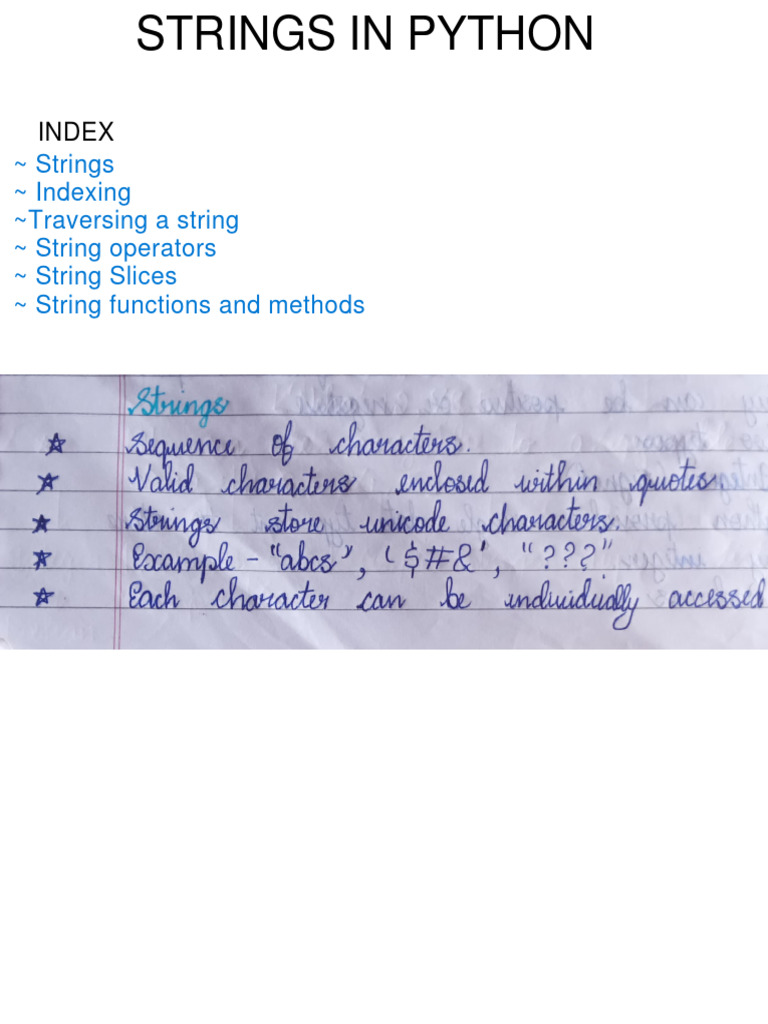 STRINGS IN PYTHON
INDEX
~ Strings
~ Indexing
~Traversing a string
~ String operators
~ String Slices
~ String functions and methods
Strings
☆ Sequence of characters.
☆ Valid characters enclosed within quotes
☆ Strings store unicode characters.
☆ Example - "abcs", '$#&', "???"
☆ Each character can be individually accessed